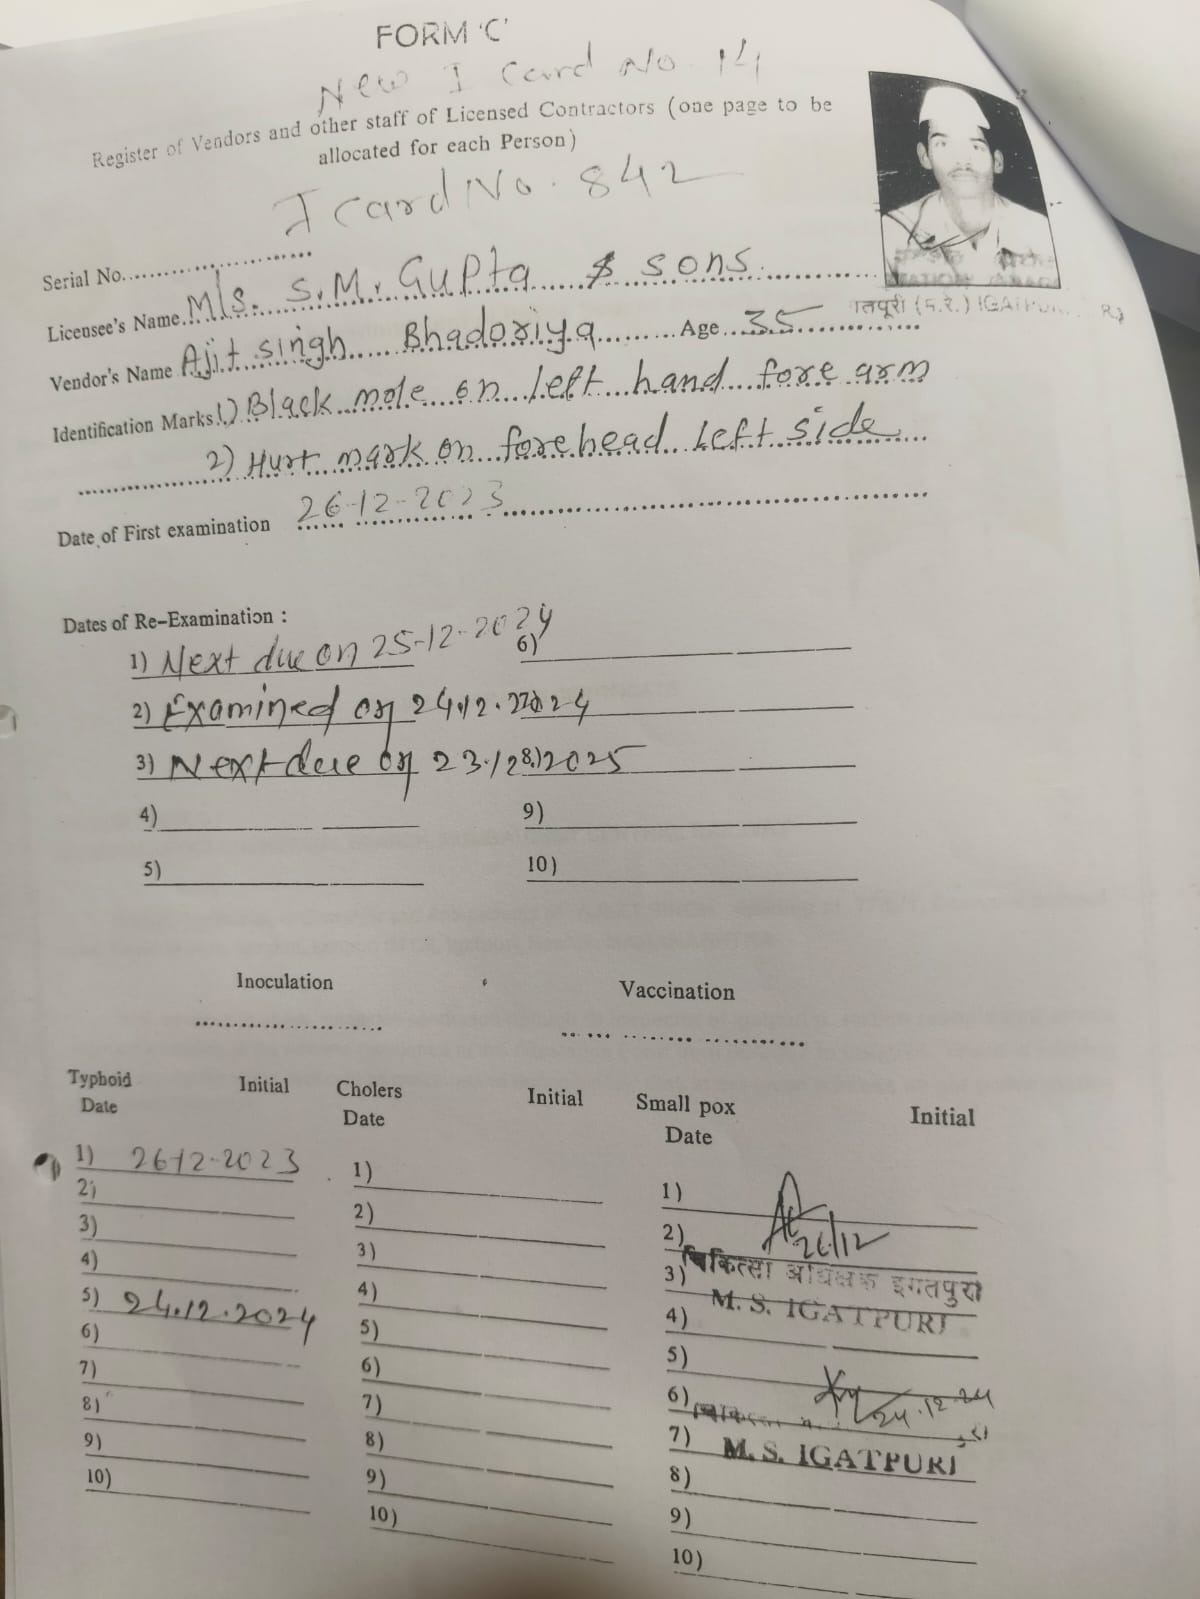 FORM 'C'
New I Card No. 14
Register of Vendors and other staff of Licensed Contractors (one page to be
allocated for each Person)
I Card No. 842
Serial No.
Licensee's Name M/s. S.M. Gupta & sons
Vendor's Name Ajit singh Bhadoriya Age 35
Identification Marks 1) Black mole on left hand fore arm
2) Hurt mark on forehead Left side
Date of First examination 26-12-2023
गतपुरी (म.रे.) IGATPU
Dates of Re-Examination :
1) Next due on 25-12-2024 6)
2) Examined on 24.12.2024
3) Next due on 23.12.2025
4) 9)
5) 10)
Inoculation Vaccination
Typhoid Initial Cholers Initial Small pox Initial
Date Date Date
1) 26-12-2023 1) 1)
2) 2) 2) 26/12
3) 3) 3) चिकित्सा अधिक्षक इगतपुरी
4) 4) 4) M. S. IGATPURI
5) 24.12.2024 5) 5)
6) 6) 6) 24.12.24
7) 7) 7) M. S. IGATPURI
8) 8) 8)
9) 9) 9)
10) 10) 10)